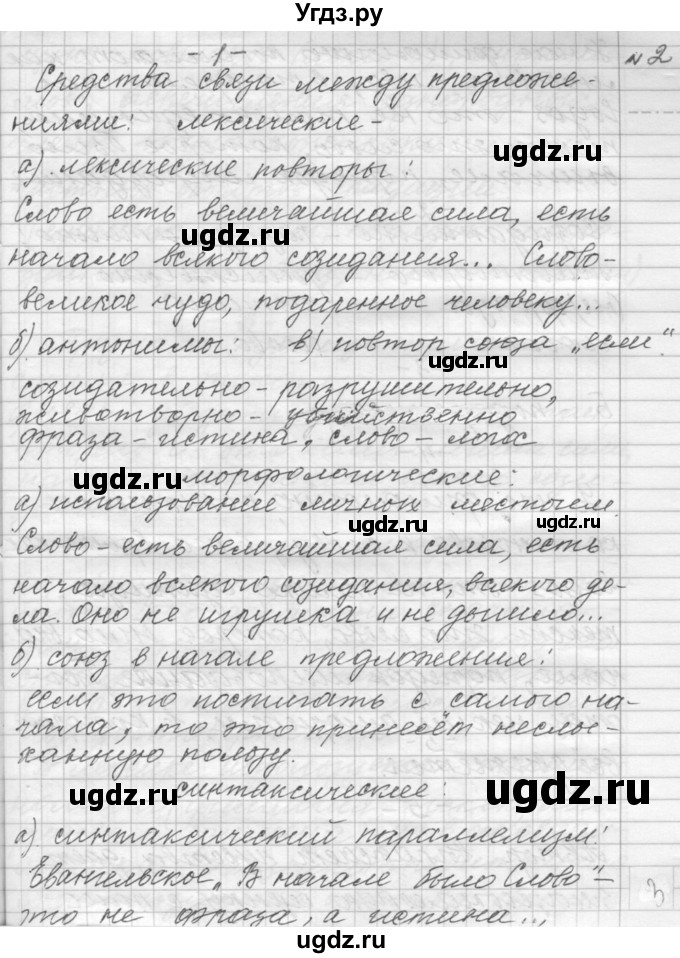 Угдз.ру
- 1 -
№2
Средства связи между предложе-
ниями: лексические-
ugdz.ru
а) лексические повторы:
Слово есть величайшая сила, есть
ugdz.ru
начало всякого созидания... Слово-
великое чудо, подаренное человеку...
б) антонимы: в) повтор союза „если“.
ugdz.ru
созидательно - разрушительно,
животворно - убийственно
фраза - истина, слово - логос
ugdz.ru
морфологические:
а) использование личных местоим.
ugdz.ru ugdz.ru
Слово - есть величайшая сила, есть
начало всякого созидания, всякого де-
ла. Оно не игрушка и не дышло...
б) союз в начале предложения:
если это постигать с самого на-
чала, то это принесёт неслы-
ханную пользу.
ugdz.ru
синтаксические:
ugdz.ru
а) синтаксический параллелизм:
Евангельское „В начале было Слово“ -
это не фраза, а истина...
3
ugdz.ru